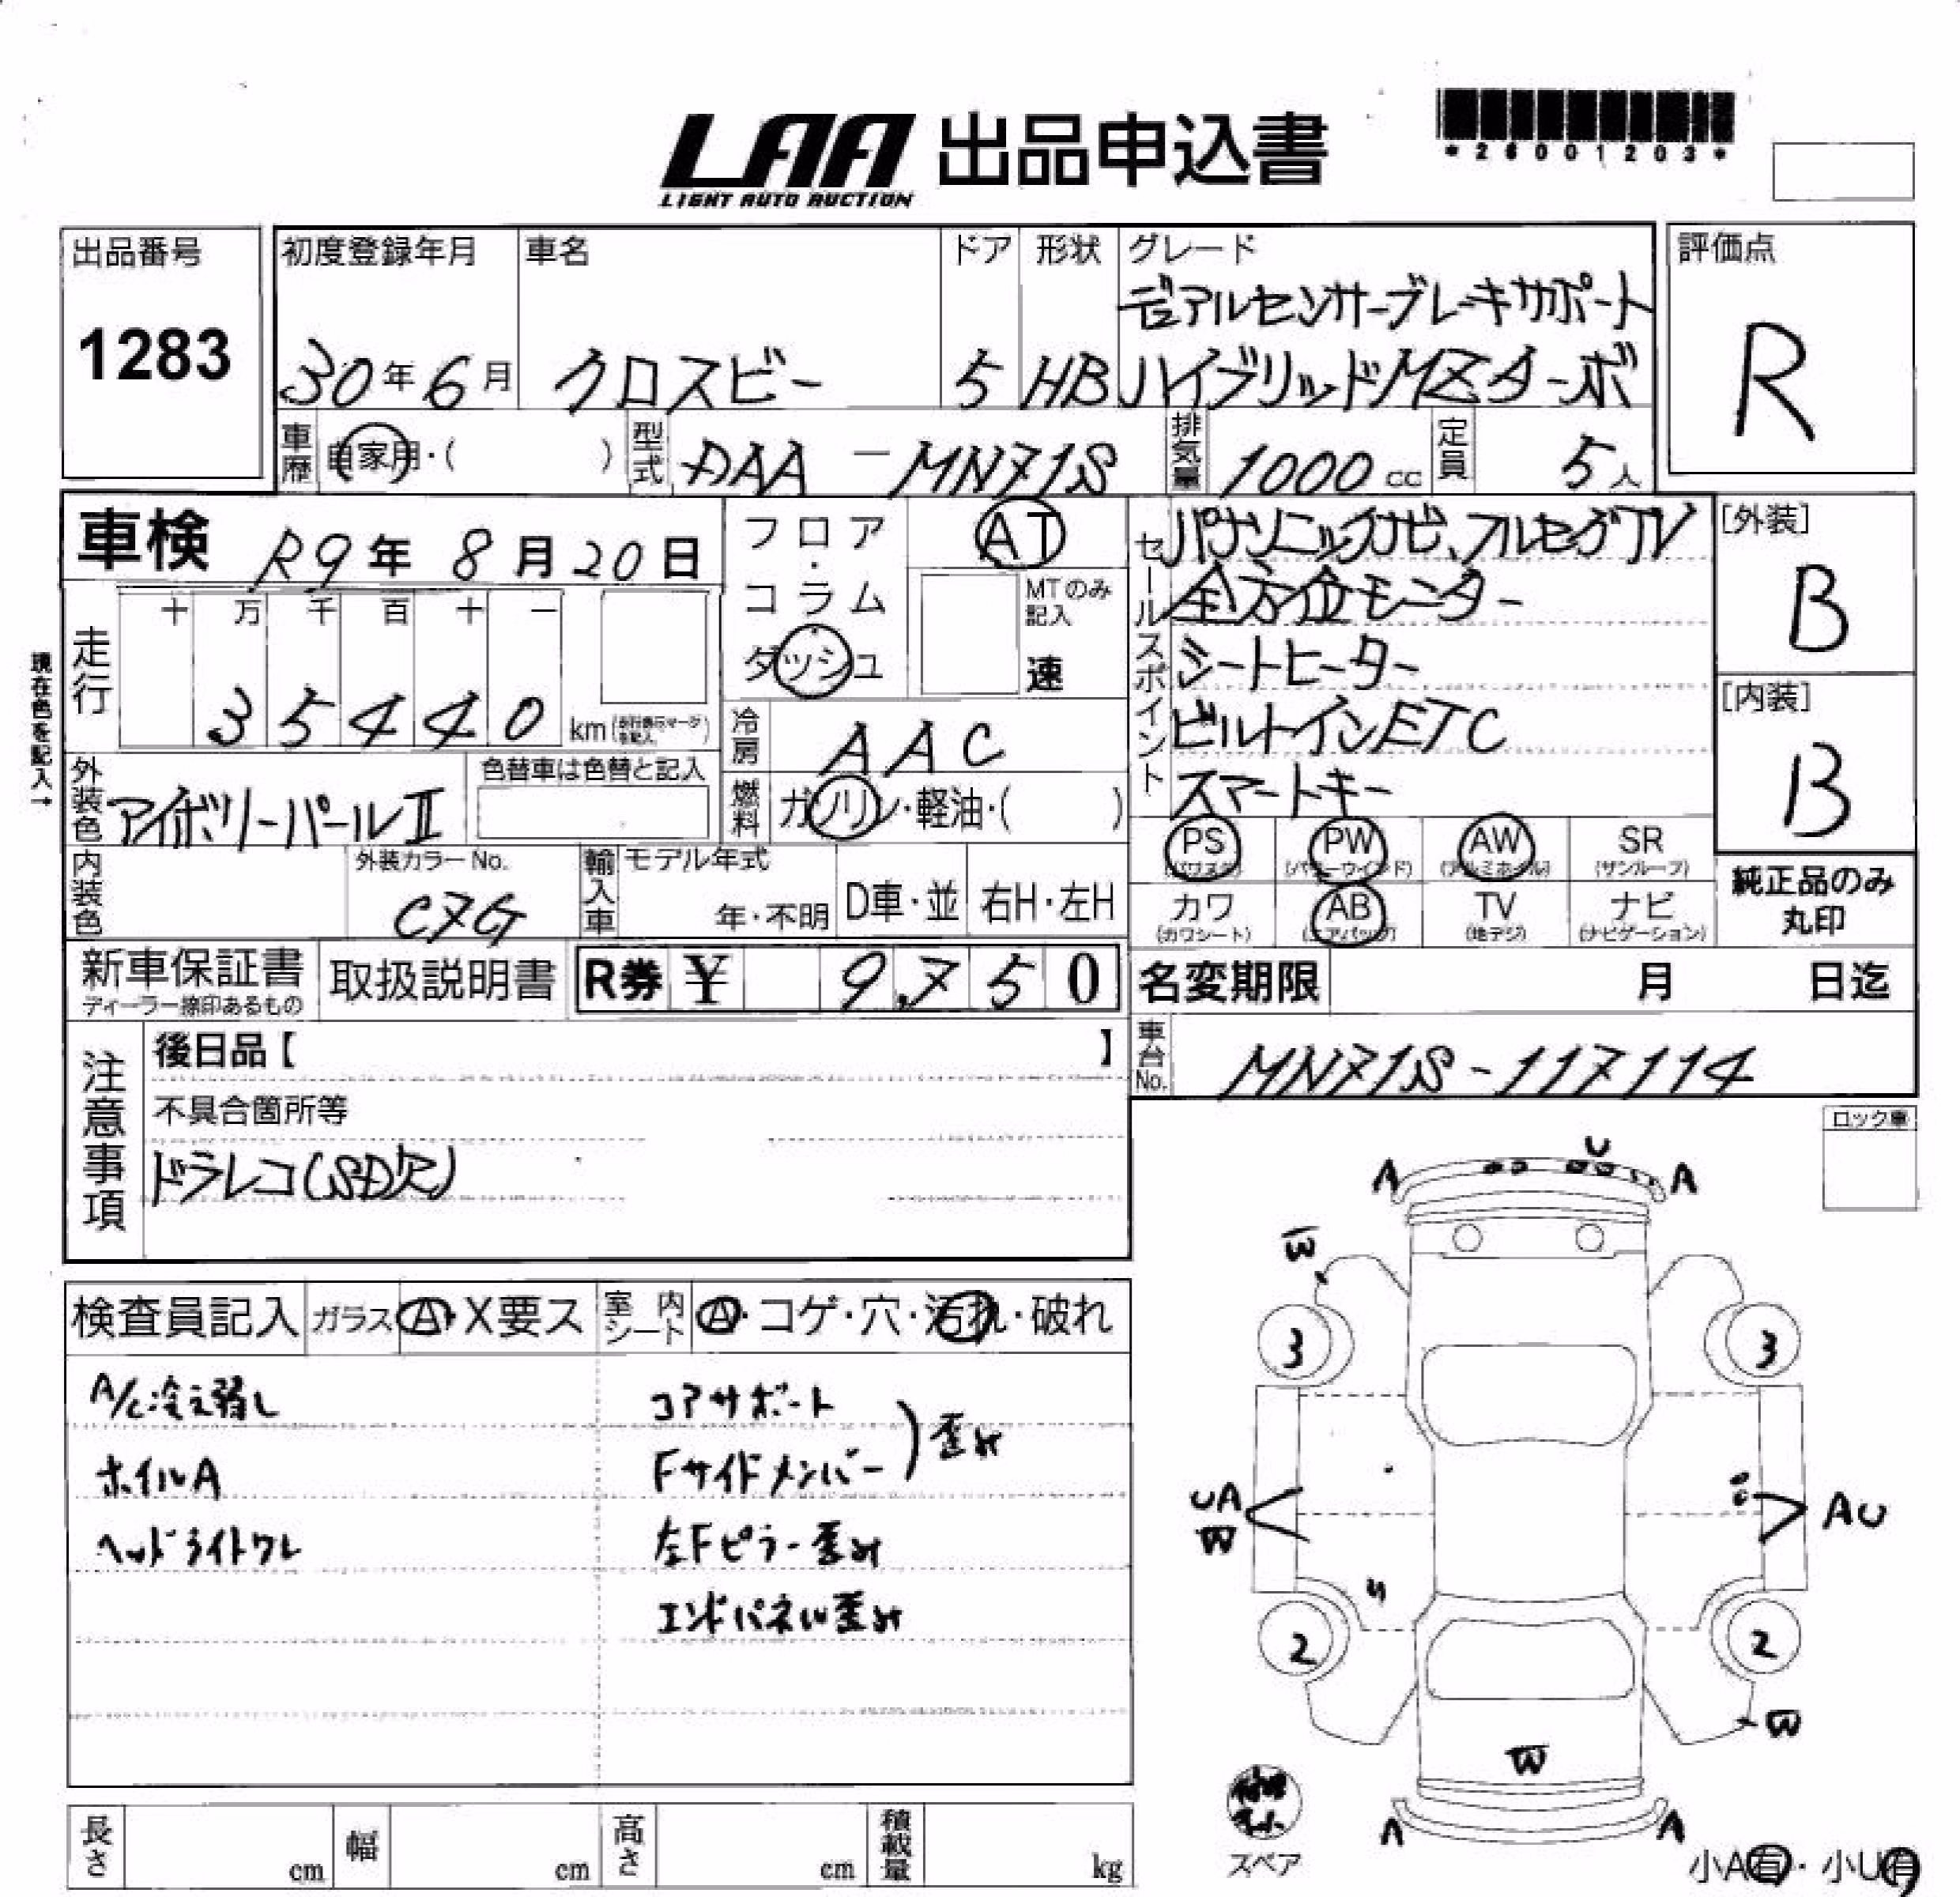 LAA 出品申込書
LIGHT AUTO AUCTION
*26001203*
出品番号
1283
初度登録年月
30年6月
車名
クロスビー
ドア
5
形状
HB
グレード
デュアルセンサーブレーキサポート
ハイブリッドMZターボ
評価点
R
車歴 自家用・( )
型式 DAA-MN71S
排気量 1000cc
定員 5人
車検 R9年8月20日
フロア・コラム・ダッシュ
AT
MTのみ記入
速
現在色を記入→
走行
十 万 千 百 十 一
35440 km
外装色 アイボリーパールⅡ
色替車は色替と記入
冷房 AAC
燃料 ガソリン・軽油・( )
内装色
外装カラーNo.
CZG
輸入車
モデル年式
年・不明
D車・並
右H・左H
セールスポイント
パナソニックナビ、フルセグTV
全方位モニター
シートヒーター
ビルトインETC
スマートキー
[外装]
B
[内装]
B
PS PW AW SR
(パワステ) (パワーウインド) (アルミホイル) (サンルーフ)
カワ AB TV ナビ
(カワシート) (エアバッグ) (地デジ) (ナビゲーション)
純正品のみ
丸印
新車保証書
ディーラー捺印あるもの
取扱説明書
R券 ¥ 9,750
名変期限 月 日迄
車台No. MN71S-117114
注意事項
後日品【 】
不具合箇所等
ドラレコ(SD欠)
ロック車
検査員記入
ガラス A・X要ス
室内シート A・コゲ・穴・汚れ・破れ
A/C冷え弱し
ホイルA
ヘッドライトワレ
コアサポート
Fサイドメンバー
歪み
左Fピラー歪み
エンドパネル歪み
U
A A
W
3 3
UA
W
AU
2 2
W
W
A A
スペア
小A有・小U有
長さ cm
幅 cm
高さ cm
積載量 kg